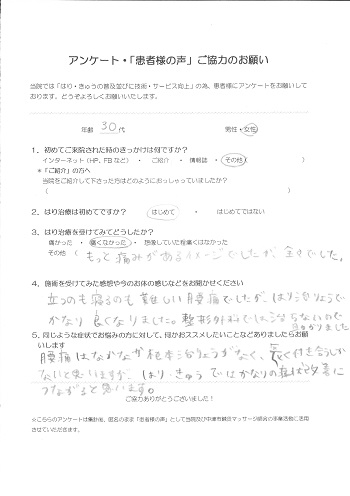 アンケート・「患者様の声」ご協力のお願い
当院では「はり・きゅうの普及並びに技術・サービス向上」の為、患者様にアンケートをお願いして
おります。どうぞよろしくお願いいたします。
年齢 30代 男性・女性
1．初めてご来院された時のきっかけは何ですか？
インターネット（HP、FBなど） ・ ご紹介 ・ 情報誌 ・ その他（ ）
＊「ご紹介」の方へ
当院をご紹介して下さった方はどのようにおっしゃっていましたか？
（ ）
2．はり治療は初めてですか？ はじめて ・ はじめてではない
3．はり治療を受けてみてどうしたか？
痛かった ・ 痛くなかった ・ 想像していた程痛くはなかった
その他（ もっと痛みがあるイメージでしたが、でした。
4．施術を受けてみた感想や今のお体の感じなどをお聞かせください
立つのも寝るのも難しい腰痛でしたが、はり治りょうで
かなり良くなりました。整形外科では治らないので
助かりました
5．同じような症状でお悩みの方に対して、何かおススメしたいことなどありましたらお願
いします
腰痛はなかなか根本治りょうがなく、長く付き合うしか
ないと思いますが、はり・きゅうではかなりの改善に
つながると思います。
ご協力ありがとうございました！
※こちらのアンケートは集計後、匿名のまま「患者様の声」として当院及び中津市鍼灸マッサージ師会の事業活動に活用
させていただきます。